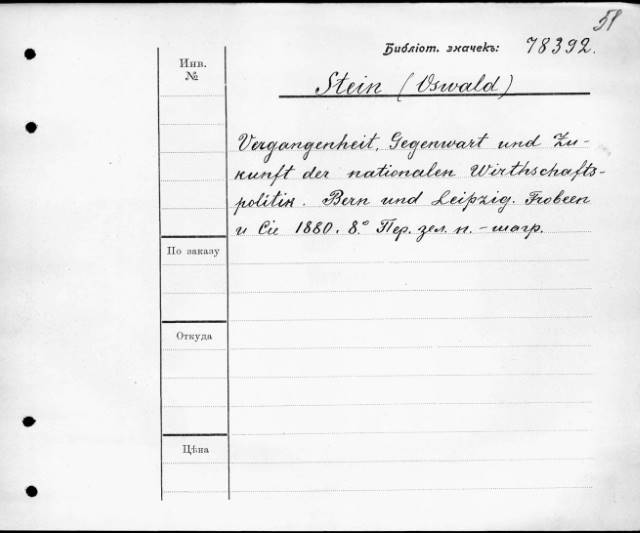 51
Библіот. значекъ: 78392.
Инв.
№
Stein (Oswald)
Vergangenheit, Gegenwart und Zu-
kunft der nationalen Wirthschafts-
politik. Bern und Leipzig. Frobeen
u Cie 1880. 8.° Пер. зел. п.-шагр.
По заказу
Откуда
Цѣна